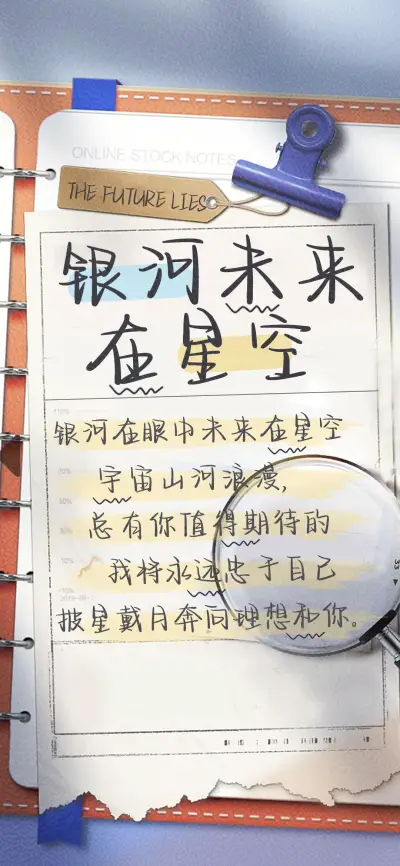 ONLINE STOCK NOTES
THE FUTURE LIES
银河未来
在星空
银河在眼中未来在星空
宇宙山河浪漫，
总有你值得期待的
我将永远忠于自己
披星戴月奔向理想和你。